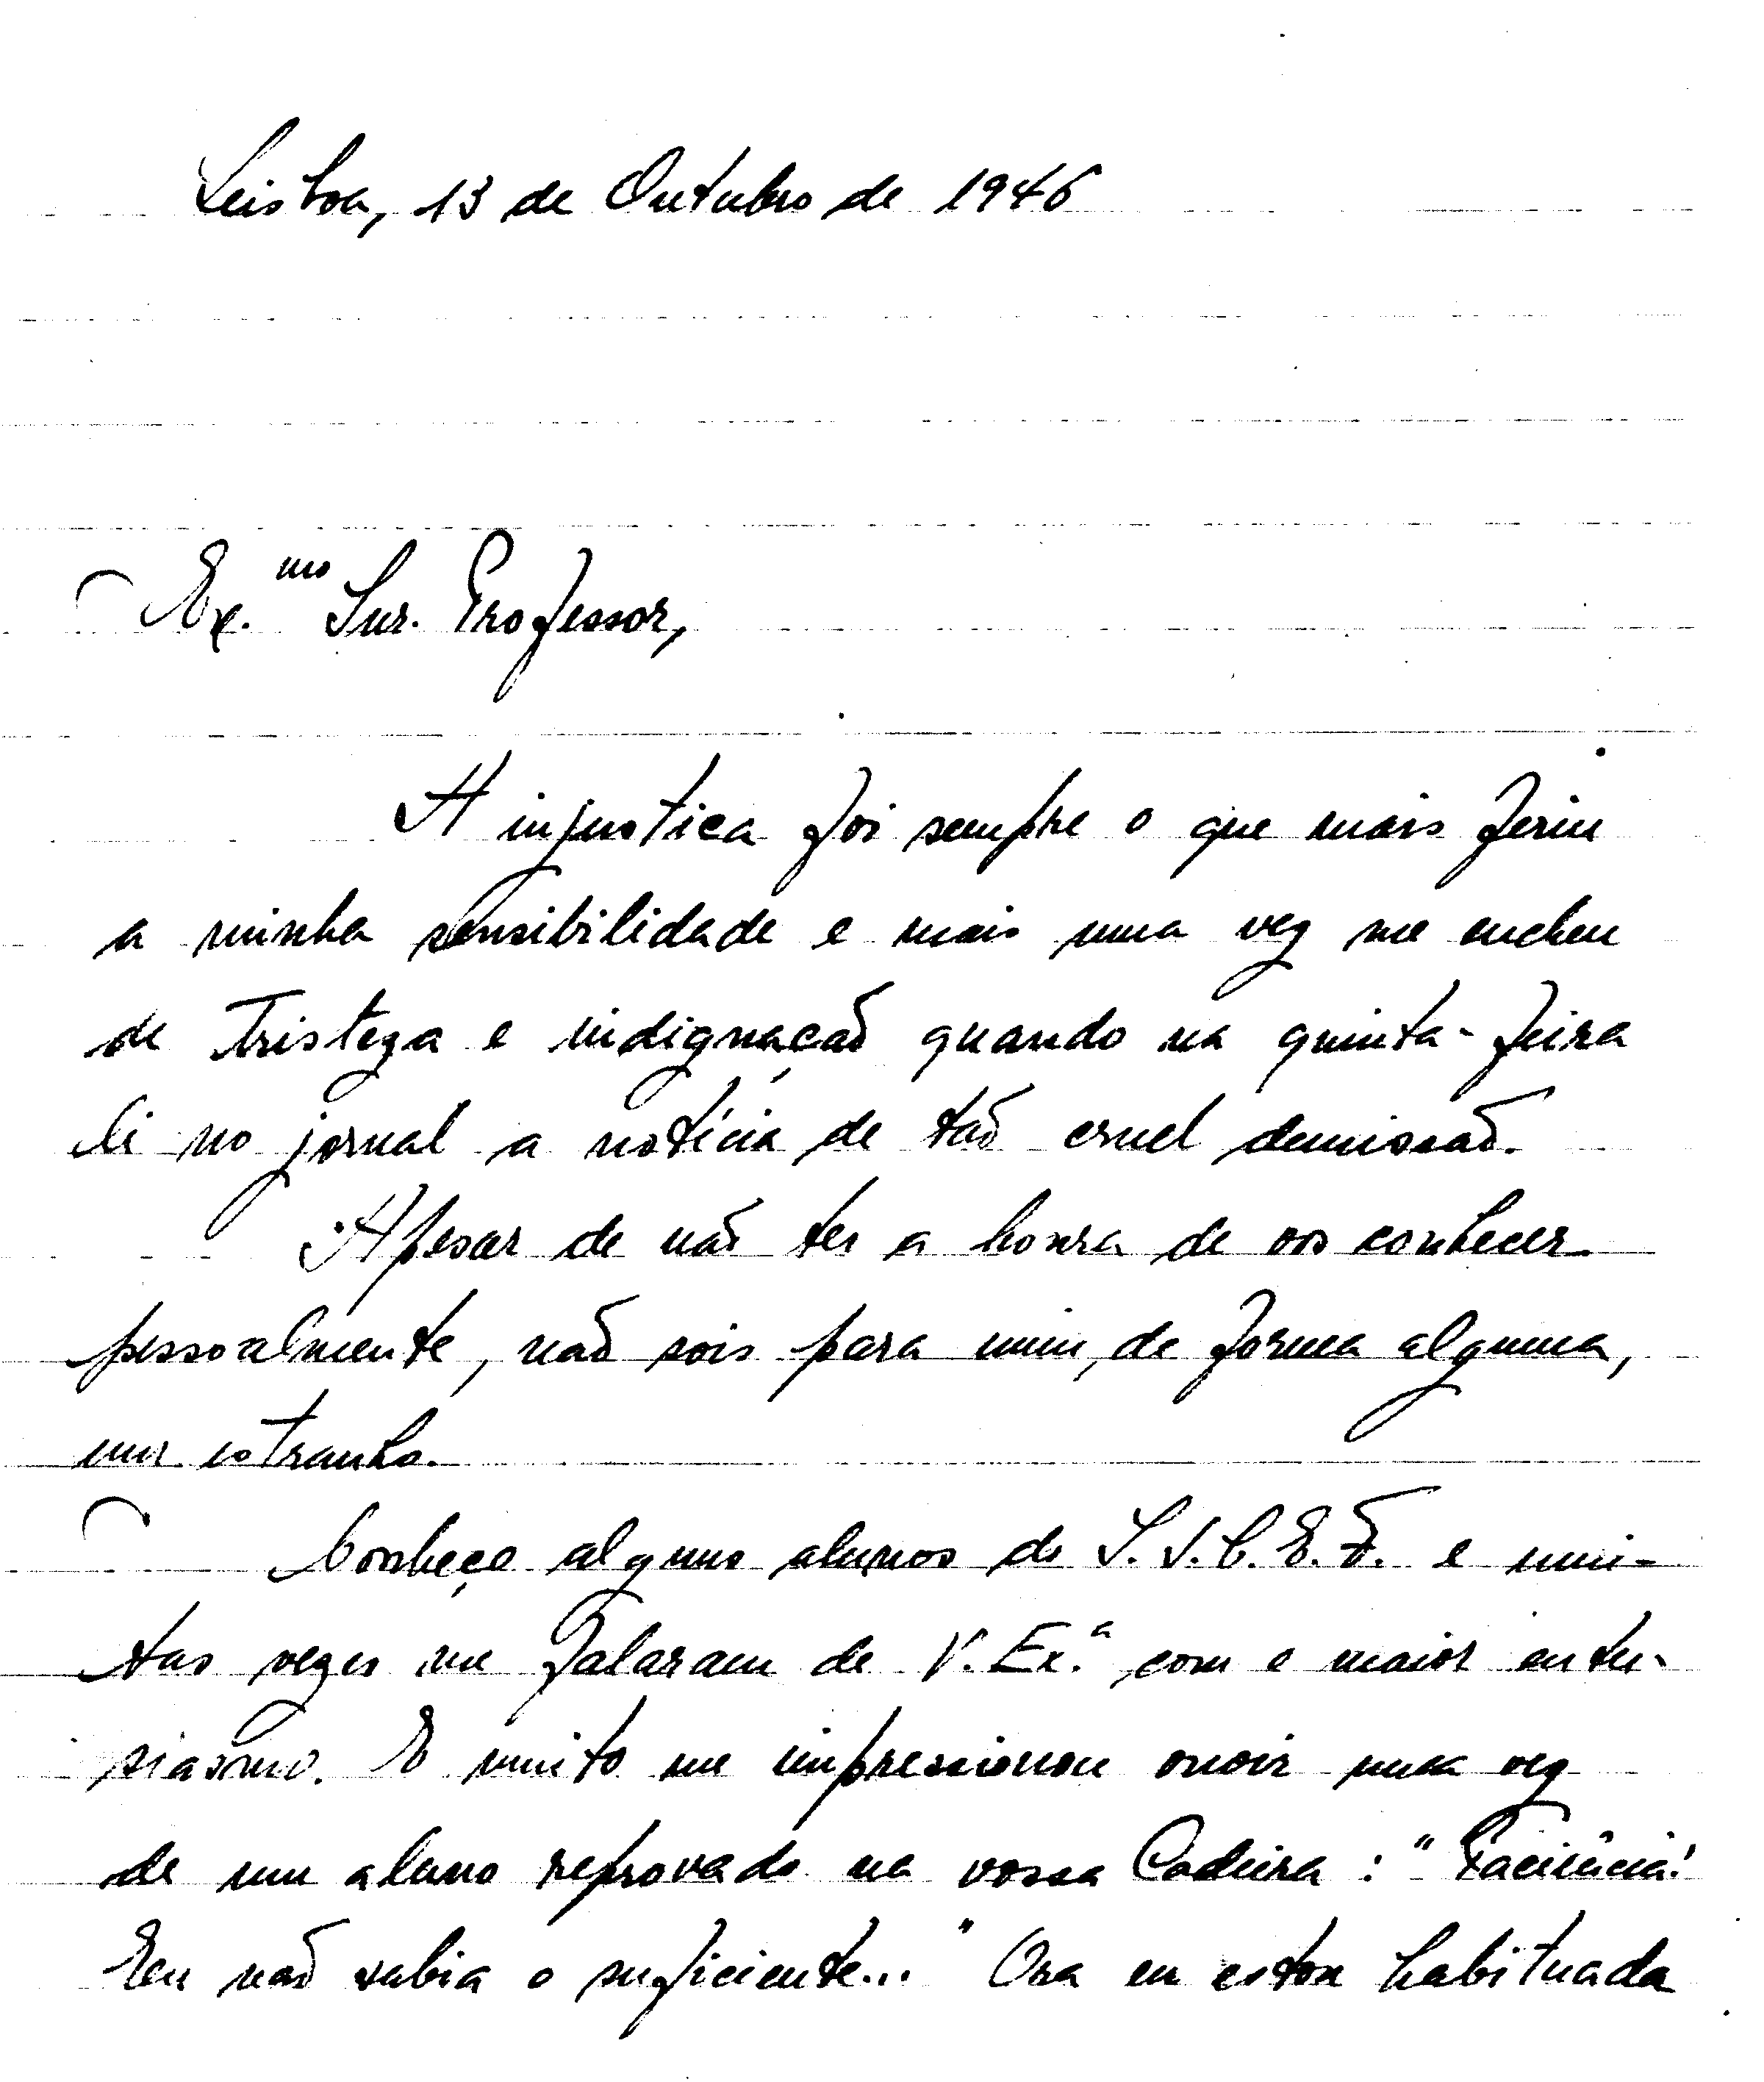 Lisboa, 13 de Outubro de 1946
Ex.mo Snr. Professor,
A injustiça foi sempre o que mais feriu
a minha sensibilidade e mais uma vez me encheu
de tristeza e indignação quando na quinta-feira
li no jornal a notícia de tão cruel demissão.
Apesar de não ter a honra de vos conhecer
pessoalmente, não sois para mim, de forma alguma,
um estranho.
Conheço alguns alunos do I.S.C.E.F. e mui-
tas vezes me falaram de V. Ex.ª com o maior entu-
siasmo. E muito me impressionou ouvir uma vez
de um aluno reprovado na vossa Cadeira: "Paciência!
Eu não sabia o suficiente..." Ora eu estou habituada